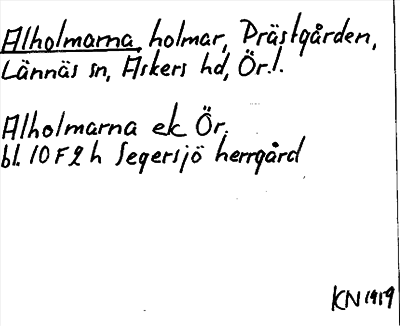 Alholmarna, holmar, Prästgården,
Lännäs sn, Askers hd, Ör.l.
Alholmarna ek Ör.
bl. 10 F 2 h Segersjö herrgård
KN 1919